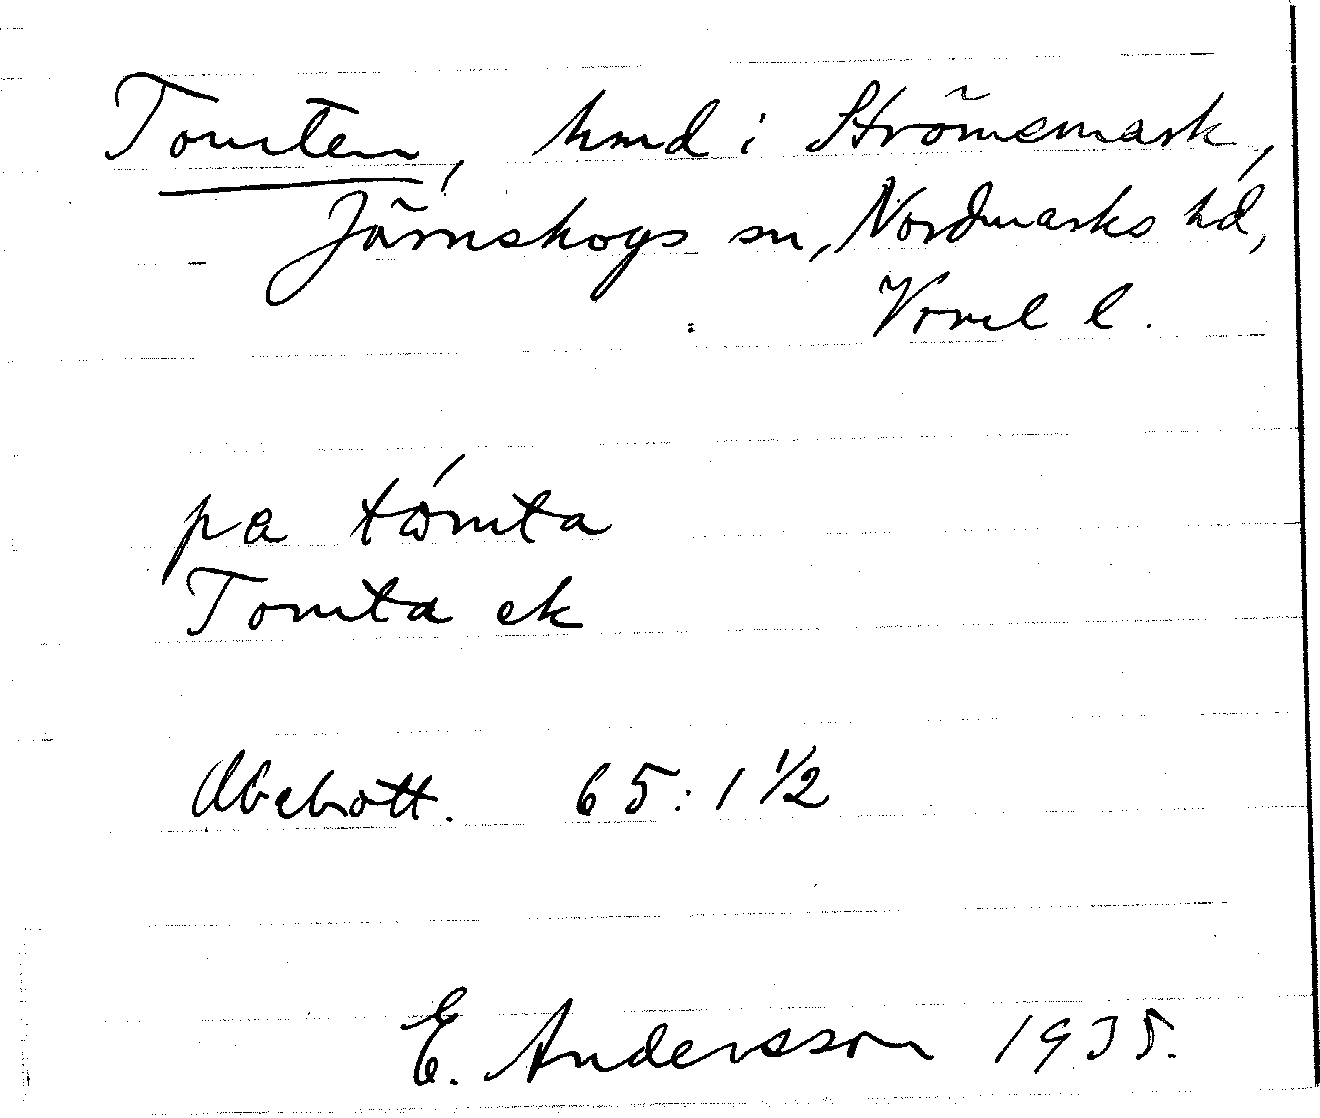 Tomten, hmd i Strömsmark,
Järnskogs sn, Nordmarks hd,
Vrml l.
pa tómta
Tomta ek
Abebott. 65:1 1/2
E. Andersson 1935.